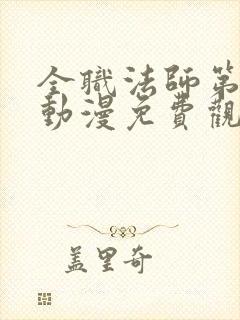 全職法師第
動漫免費觀
蓋里奇